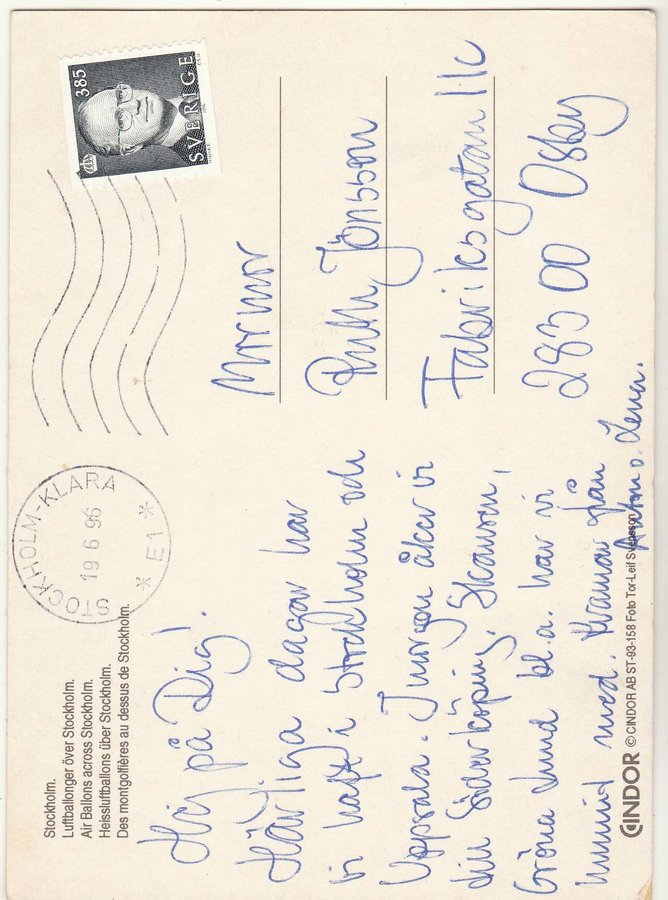 Stockholm.
Luftballonger över Stockholm.
Air Ballons across Stockholm.
Heissluftballons über Stockholm.
Des montgolfières au dessus de Stockholm.
STOCKHOLM-KLARA
19 6 96
* E1 *
385
SVERIGE
Hej på Dig!
Härliga dagar har
vi haft i Stockholm och
Uppsala. I morgon åker vi
till Söderköping. Skansen,
Gröna Lund bl.a. har vi
hunnit med. Kramar från
Anton o. Lena.
Mormor
Ruth Jönsson
Fabriksgatan 11c
283 00 Osby
CINDOR © CINDOR AB ST-93-158 Foto Tor-Leif Svensson